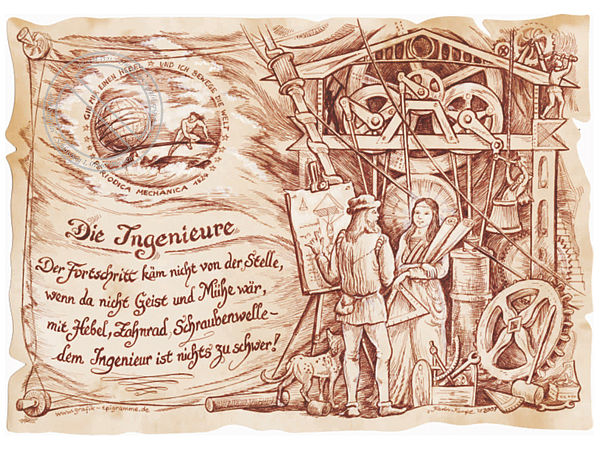 GIB MIR EINEN HEBEL ☆ UND ICH BEWEGE DIE WELT ☆
PERIODICA MECHANICA 1824
Die Ingenieure
Der Fortschritt käm nicht von der Stelle,
wenn da nicht Geist und Mühe wär,
mit Hebel, Zahnrad, Schraubenwelle –
dem Ingenieur ist nichts zu schwer!
www.grafik-epigramme.de